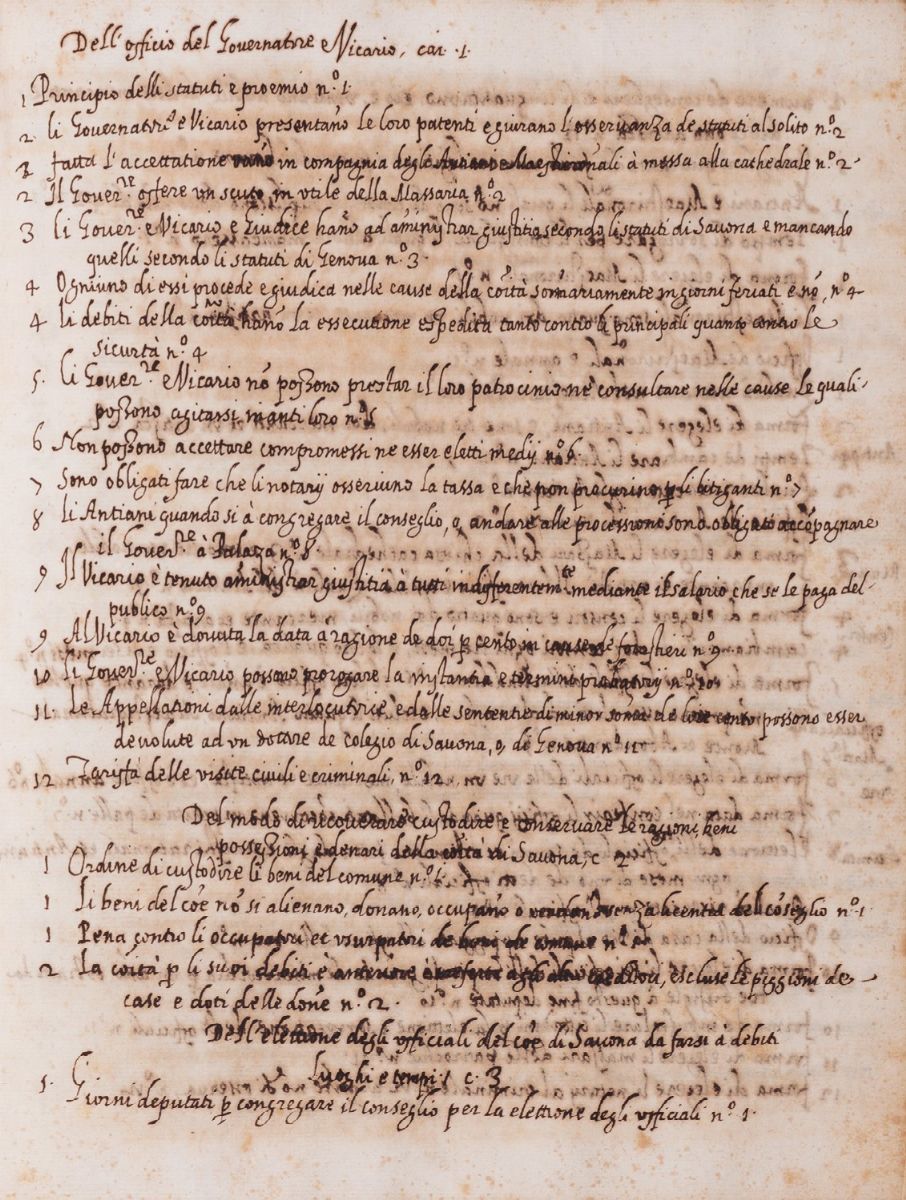 Dell'officio del Governatore e Vicario, car. 1.
1 Principio delli statuti e proemio n.º 1.
2. li Governatori e Vicario presentano le loro patenti e giurano l'osservanza de statuti al solito n.º 2
2 fatta l'accettatione vano in compagnia degli Antiani e Mastri rationali à messa alla cathedrale n.º 2.
2 Il Gover.re offere un scuto in utile della Massaria n.º 2
3 li Gover.re e Vicario e Giudice hano ad aminystrar giustitia secondo li statuti di Savona e mancando
quelli secondo li statuti di Genova n.º 3.
4 Ogniuno di essi procede e giudica nelle cause della coità somariamente in giorni feriati e nó, n.º 4
4 li debiti della coità hano la essecutione espedita tanto contro li principali quanto contro le
sicurtà n.º 4
5. li Gover.re e Vicario nó possono prestar il loro patrocinio ne consultare nelle cause le quali
possono agitarsi inanti loro n.º 5
6 Non possono accettare compromessi ne esser eletti medij n.º 6.
7 Sono obligati fare che li notarij osservino la tassa e che non procurino p li litiganti n.º 7
8 li Antiani quando si à congregare il conseglio, o, andare alle processione sono obligati accópagnare
il Gover.re à Palazo n.º 8.
9 Il Vicario è tenuto aministrar giustitia à tutti indifferentem.te mediante il salario che se le paga del
publico n.º 9
9 Al Vicario è dovuta la data a ragione de doi p cento, in cause de forastieri n.º 9
10 li Gover.re e Vicario possono prorogare la instantia e termini probatorij n.º 10.
11. le Appellationi dalle interlocutorie, e dalle sententie di minor soma de lire cento possono esser
devolute ad un dottore de colegio di Savona, o, di Genova n.º 11
12 Tariffa delle visite civili e criminali, n.º 12.
Del modo di recouerare custodire e conservare le ragioni, beni
possessioni e denari della coità di Savona, c. 2
1 Ordine di custodire li beni del comune n.º 1.
1 li beni del cóe nó si alienano, donano, occupano o vendano senza licentia del cóseglio n.º 1.
1 Pena contro li occupatori et usurpatori de beni de comune n.º 1
2 La coità p li suoi debiti è anteriore à creditori, escluse le piggioni de
case e doti delle done n.º 2.
Dell'elettione degli ufficiali del cóe di Savona da farsi à debiti
luoghi e tempi c. 3
1. Giorni deputati p congregare il conseglio per la elettione degli ufficiali n.º 1.